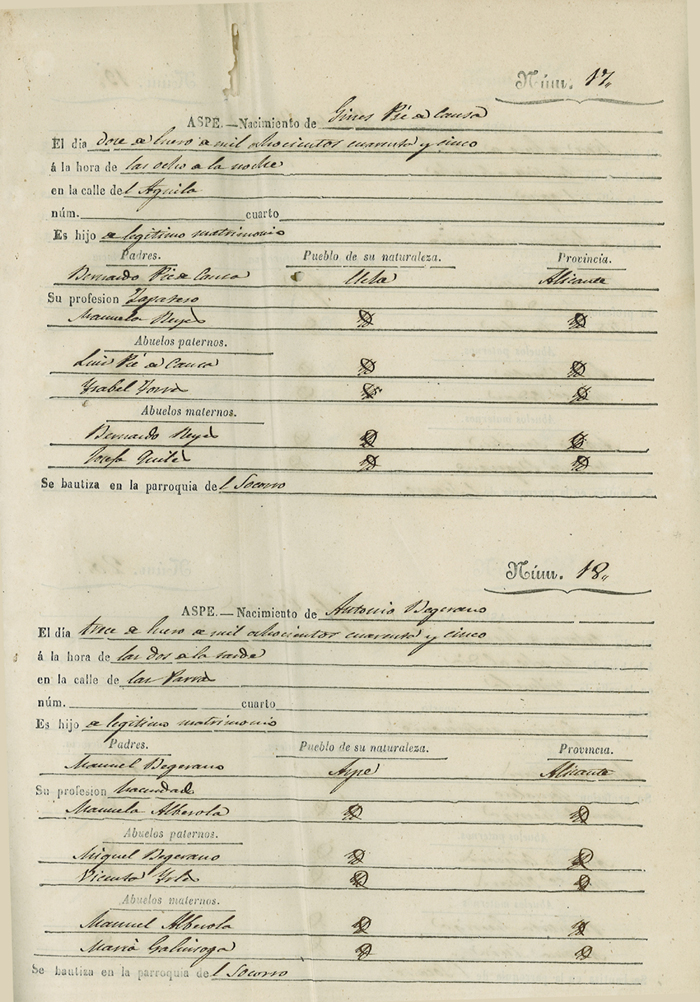 Núm. 17.
ASPE.—Nacimiento de Gines Pié de Causa
El dia doce de Enero de mil ochocientos cuarenta y cinco
á la hora de las ocho de la noche
en la calle del Aguila
núm. cuarto
Es hijo de legitimo matrimonio
Padres. Pueblo de su naturaleza. Provincia.
Bernardo Pié de Causa Alicante
Su profesion Zapatero
Manuela Reyes
Abuelos paternos.
Luis Pié de Causa
Ysabel
Abuelos maternos.
Bernardo Reyes
Josefa
Se bautiza en la parroquia del Socorro
Núm. 18.
ASPE.—Nacimiento de Antonio Begerano
El dia trece de Enero de mil ochocientos cuarenta y cinco
á la hora de las dos de la tarde
en la calle de las Parras
núm. cuarto
Es hijo de legitimo matrimonio
Padres. Pueblo de su naturaleza. Provincia.
Manuel Begerano Aspe Alicante
Su profesion hacendado
Manuela Alberola
Abuelos paternos.
Miguel Begerano
Vicenta
Abuelos maternos.
Manuel Alberola
Maria
Se bautiza en la parroquia del Socorro